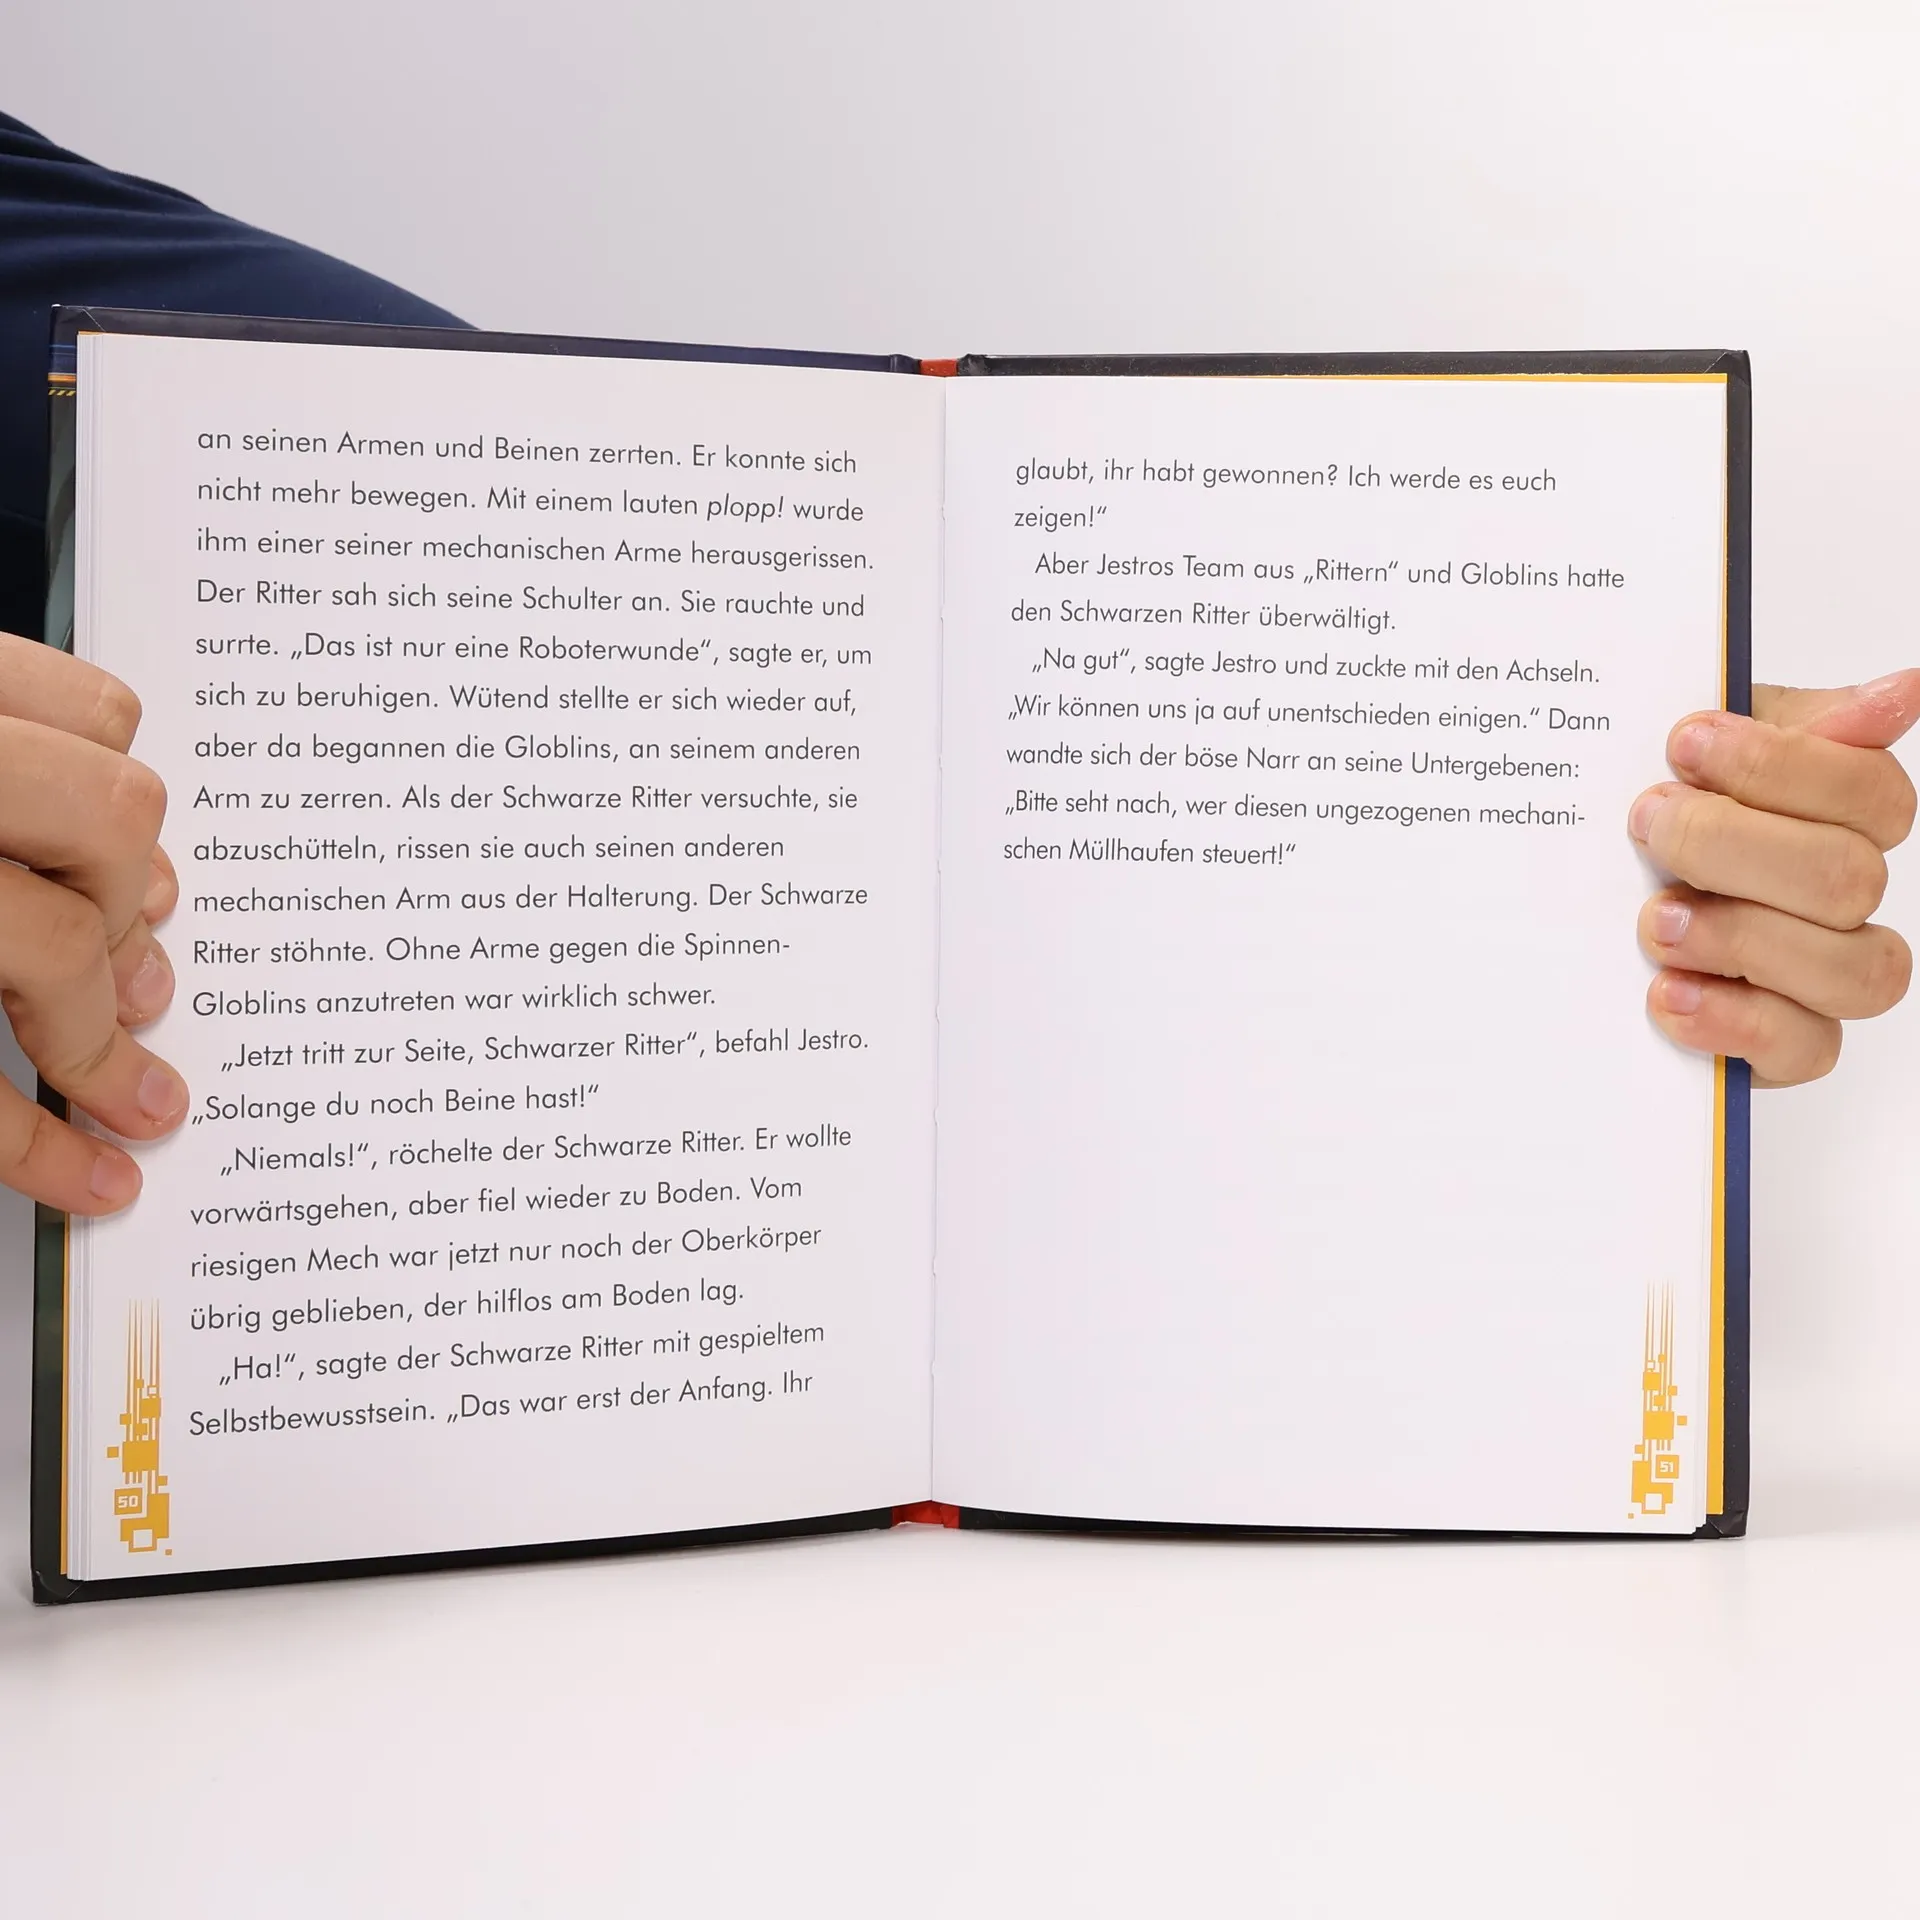 an seinen Armen und Beinen zerrten. Er konnte sich
nicht mehr bewegen. Mit einem lauten plopp! wurde
ihm einer seiner mechanischen Arme herausgerissen.
Der Ritter sah sich seine Schulter an. Sie rauchte und
surrte. „Das ist nur eine Roboterwunde“, sagte er, um
sich zu beruhigen. Wütend stellte er sich wieder auf,
aber da begannen die Globlins, an seinem anderen
Arm zu zerren. Als der Schwarze Ritter versuchte, sie
abzuschütteln, rissen sie auch seinen anderen
mechanischen Arm aus der Halterung. Der Schwarze
Ritter stöhnte. Ohne Arme gegen die Spinnen-
Globlins anzutreten war wirklich schwer.
„Jetzt tritt zur Seite, Schwarzer Ritter“, befahl Jestro.
„Solange du noch Beine hast!“
„Niemals!“, röchelte der Schwarze Ritter. Er wollte
vorwärtsgehen, aber fiel wieder zu Boden. Vom
riesigen Mech war jetzt nur noch der Oberkörper
übrig geblieben, der hilflos am Boden lag.
„Ha!“, sagte der Schwarze Ritter mit gespieltem
Selbstbewusstsein. „Das war erst der Anfang. Ihr
50
glaubt, ihr habt gewonnen? Ich werde es euch
zeigen!“
Aber Jestros Team aus „Rittern“ und Globlins hatte
den Schwarzen Ritter überwältigt.
„Na gut“, sagte Jestro und zuckte mit den Achseln.
„Wir können uns ja auf unentschieden einigen.“ Dann
wandte sich der böse Narr an seine Untergebenen:
„Bitte seht nach, wer diesen ungezogenen mechani-
schen Müllhaufen steuert!“
51